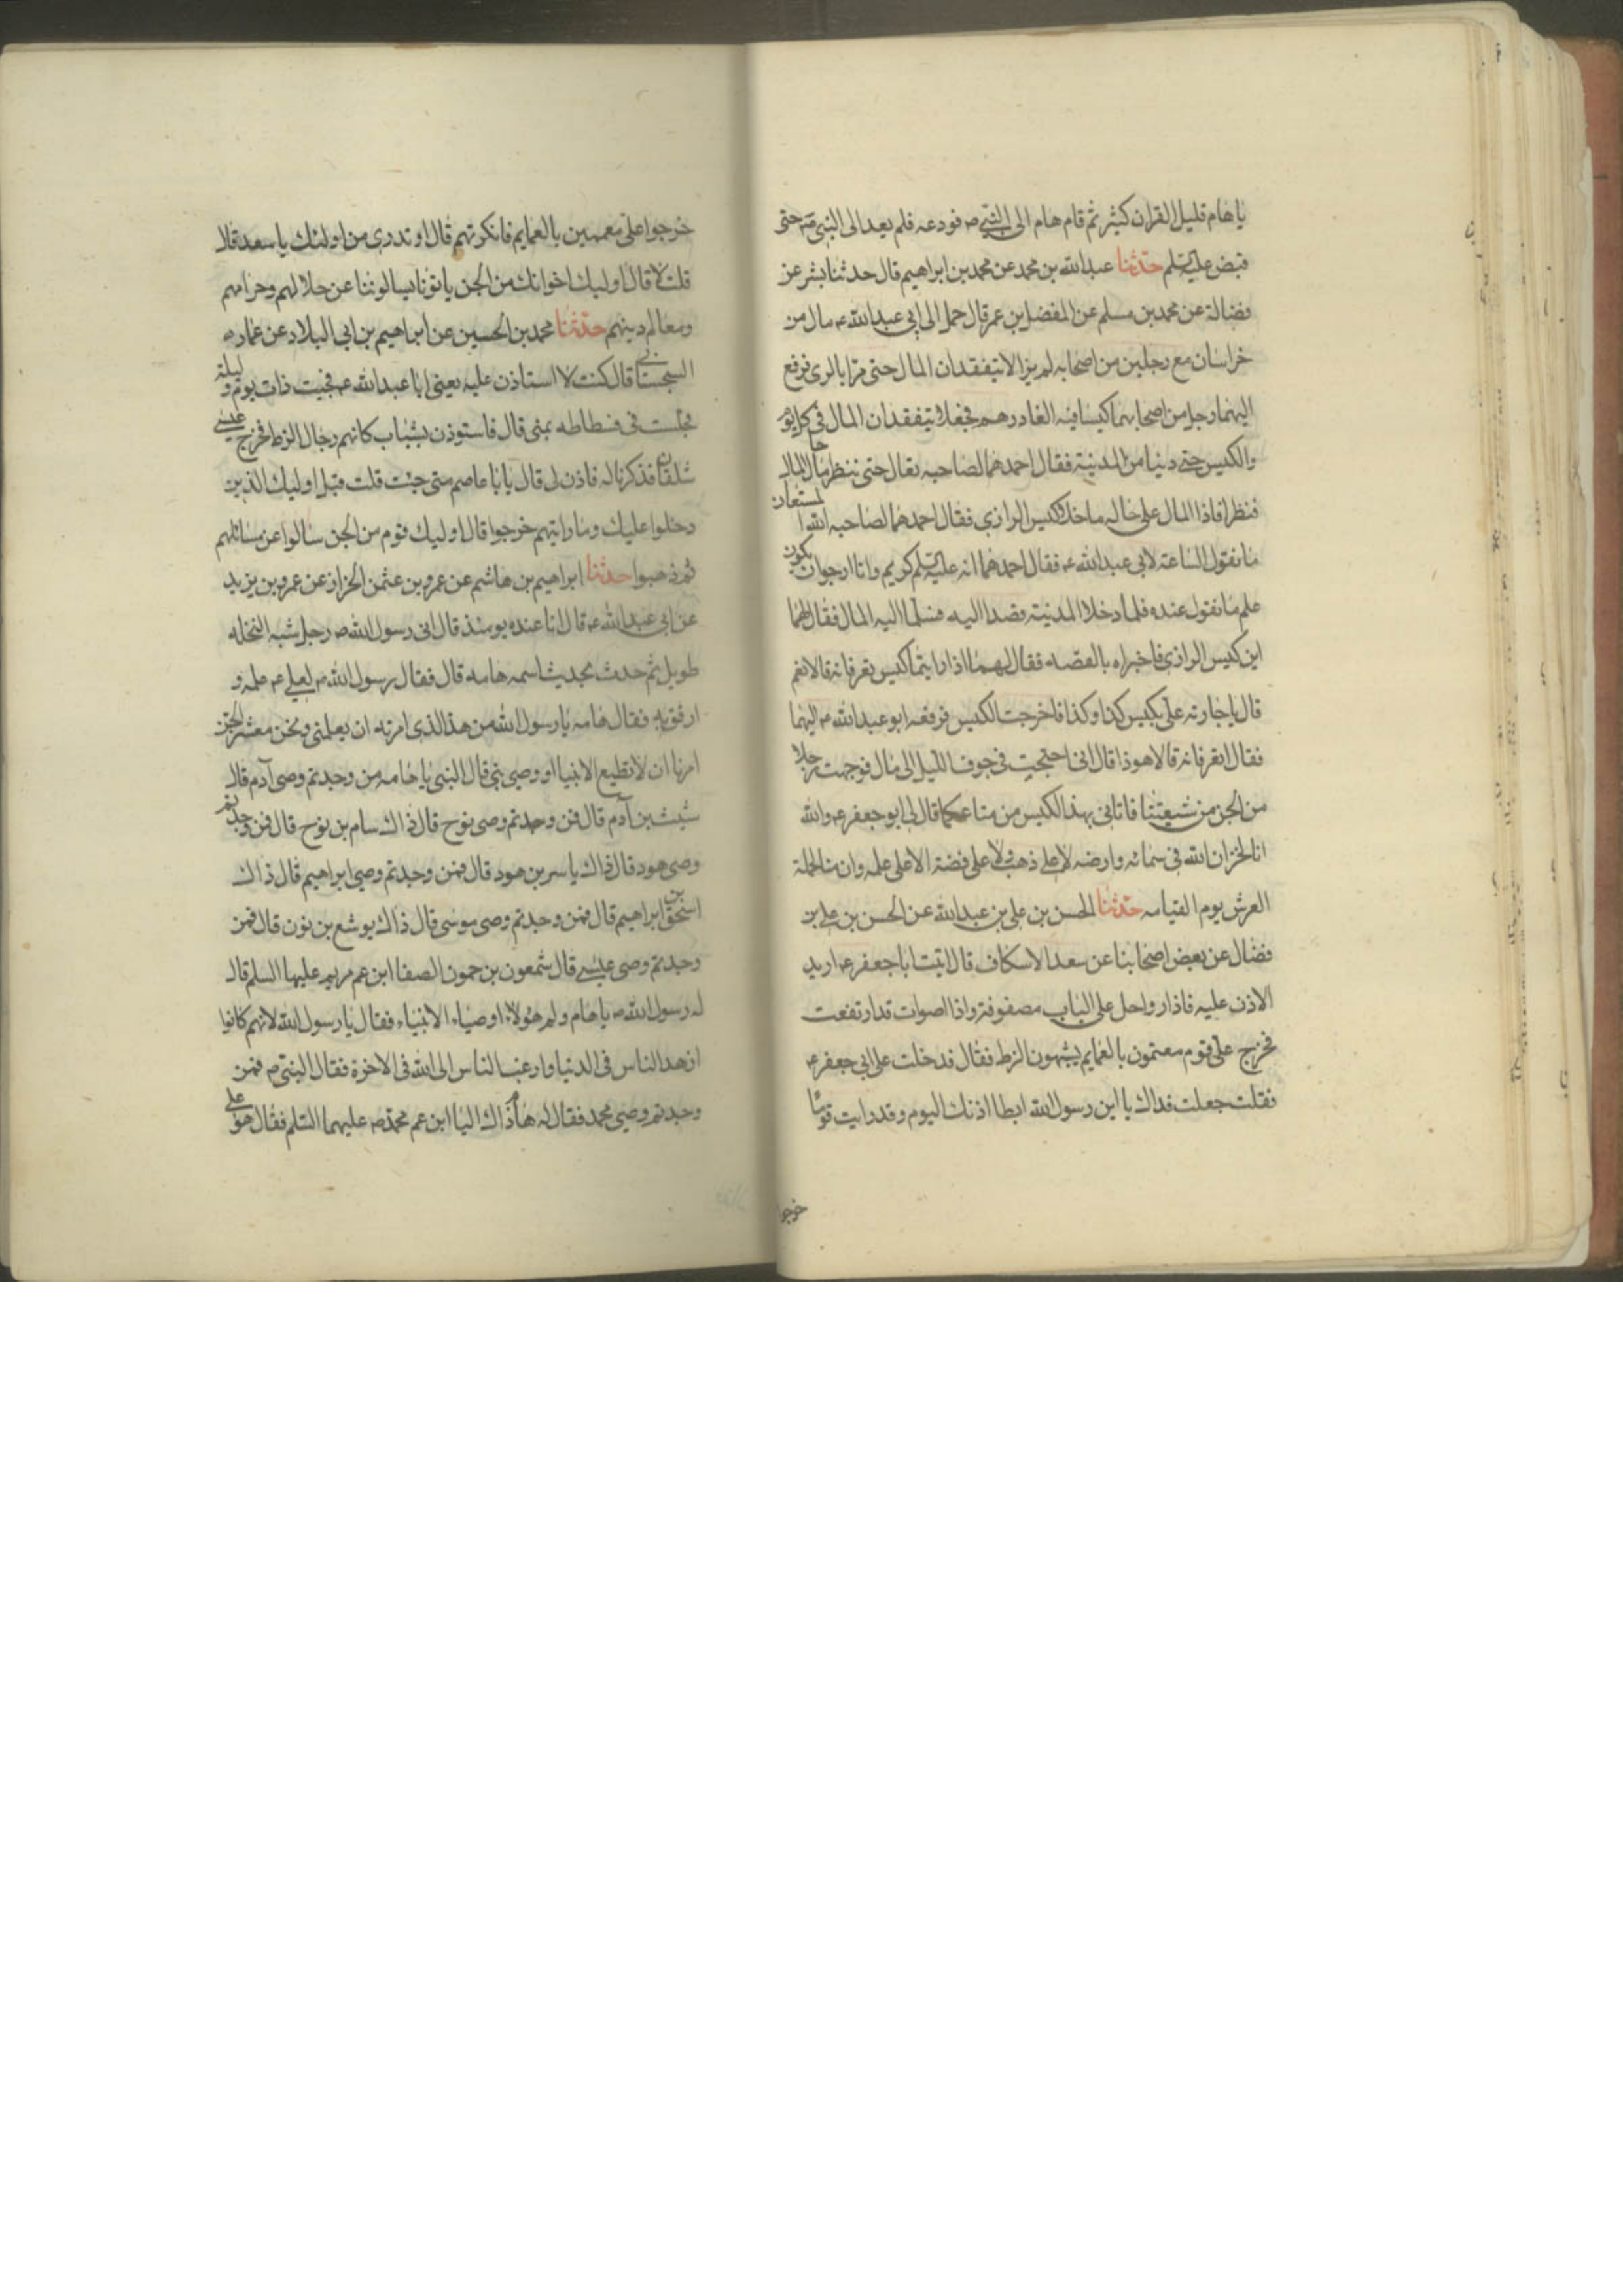 يا هام قليل القران كثير ثم قام هام الى النبي ص فودعه فلم يعد الى النبي ص حتى
قبض عليه السلم حدثنا عبدالله بن محمد عن محمد بن ابراهيم قال حدثنا بشر عن
فضالة عن محمد بن مسلم عن المفضل بن عمر قال حمل الى ابي عبدالله ع مال من
خراسان مع رجلين من اصحابه لم يزالا يتفقدان المال حتى مرا بالرى فرفع
اليهما رجل من اصحابهما كيسا فيه الفا درهم فجعلا يتفقدان المال فى كل يوم
والكيس حتى دنيا من المدينة فقال احدهما لصاحبه تعال حتى ننظر ما حال المال
فنظرا فاذا المال على حاله ما خلا كيس الرازي فقال احدهما لصاحبه الله المستعان
ما نقول الساعة لابي عبدالله ع فقال احدهما انه عليه السلم كريم وانا ارجوان يكون
علم ما نقول عنده فلما دخلا المدينة قصدا اليه فسلما اليه المال فقال لهما
اين كيس الرازي فاخبراه بالقصه فقال لهما اذا رايتما الكيس تعرفانه قالا نعم
قال يا جارية على بكيس كذا وكذا فاخرجت الكيس فرفعه ابو عبدالله ع اليهما
فقال اتعرفانه قالا هوذا قال انى احتجت في جوف الليل الى مال فوجهت رجلا
من الجن من شيعتنا فاتانى بهذا الكيس من متاعكما قال لى ابو جعفر ع والله
انا لخزان الله فى سمائه وارضه لا على ذهب ولا على فضة الا على علمه وان منا لحملة
العرش يوم القيامه حدثنا الحسن بن على بن عبدالله عن الحسن بن على بن
فضال عن بعض اصحابنا عن سعد الاسكاف قال اتيت ابا جعفر ع اريد
الاذن عليه فاذا رواحل على الباب مصفوفة واذا اصوات قد ارتفعت
فخرج على قوم معتمون بالعمايم يشبهون الزط فقال فدخلت على ابي جعفر ع
فقلت جعلت فداك يا ابن رسول الله ابطا اذنك اليوم وقد رايت قوما
خرجو
خرجوا على معممين بالعمايم فانكرتهم قال او تدرى من اولئك يا سعد قال
قلت لا قال اوليك اخوانك من الجن ياتونا يسالوننا عن حلالهم وحرامهم
ومعالم دينهم حدثنا محمد بن الحسين عن ابراهيم بن ابي البلاد عن عمار
السجستانى قال كنت لا استاذن عليه يعنى ابا عبدالله ع فجيت ذات يوم وليلة
فجلست فى فسطاطه بمنى قال فاستوذن بشباب كانهم رجال الزط فخرج عيسى
شلقان فذكرنا له فاذن لى قال يا ابا عاصم متى جئت قلت قبل اوليك الذين
دخلوا عليك وما رايتهم خرجوا قال اوليك قوم من الجن سالوا عن مسائلهم
ثم ذهبوا حدثنا ابراهيم بن هاشم عن عمرو بن عثمن الخزاز عن عمرو بن يزيد
عن ابي عبدالله ع قال انا عنده يومئذ قال اتى رسول الله ص رجل شبه النخله
طويل ثم حدث بحديثا اسمه هامه قال فقال رسول الله ص لعلى ع علمه و
ارفق به فقال هامه يا رسول الله من هذا الذى امرته ان يعلمنى ونحن معشر الجن
امرنا ان لا نطيع الانبيا او وصى نبي قال النبي يا هامه من وجدتم وصى آدم قال
شيث بن آدم قال فمن وجدتم وصى نوح قال ذاك سام بن نوح قال فمن وجدتم
وصى هود قال ذاك ياسر بن هود قال فمن وجدتم وصى ابراهيم قال ذاك
اسحق بن ابراهيم قال فمن وجدتم وصى موسى قال ذاك يوشع بن نون قال فمن
وجدتم وصى عيسى قال شمعون بن حمون الصفا ابن عم مريم عليها السلم قال
له رسول الله ص يا هام ولم هولاء اوصياء الانبياء فقال يا رسول الله لانهم كانوا
ازهد الناس فى الدنيا وارغب الناس الى الله فى الاخرة فقال النبي ص فمن
وجدتم وصى محمد فقال له هام ذاك اليا ابن عم محمد ص عليهما السلم فقال هو على